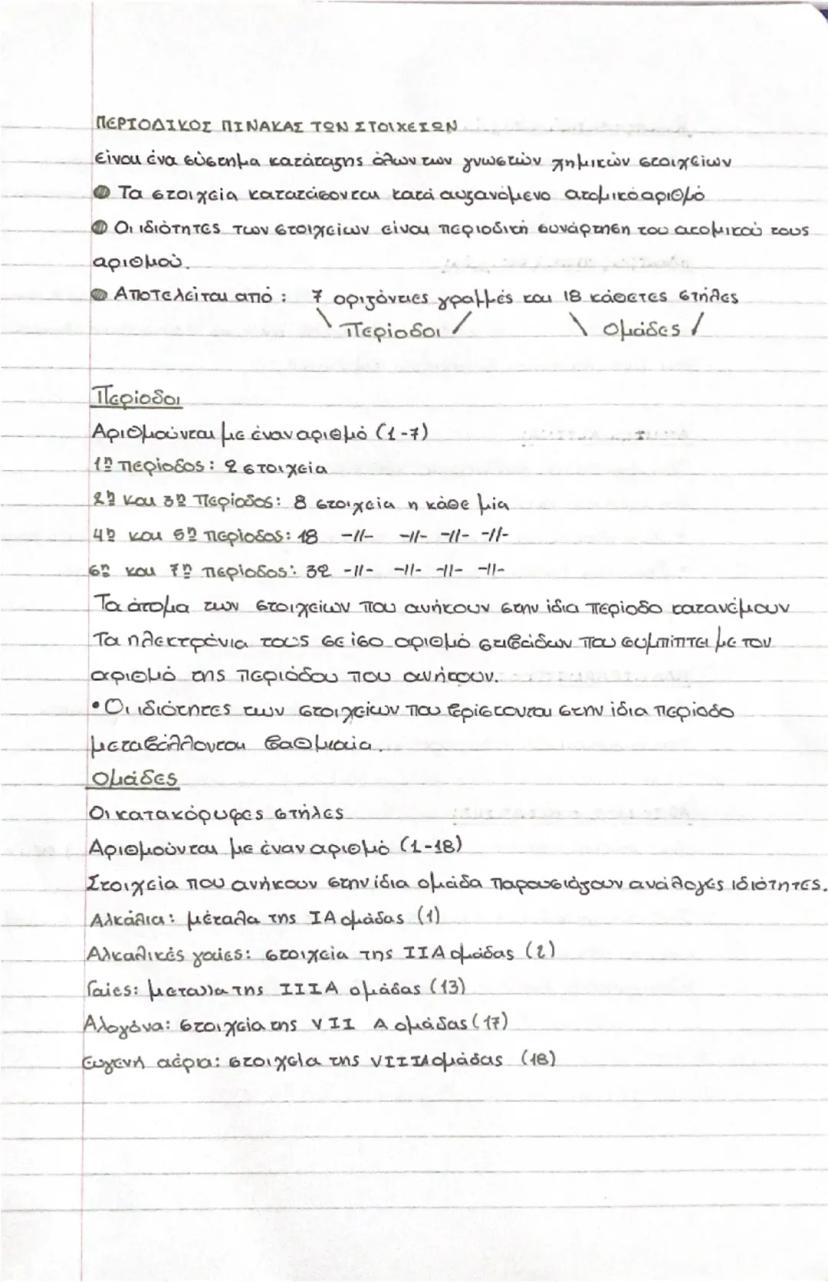 ΠΕΡΙΟΔΙΚΟΣ ΠΙΝΑΚΑΣ ΤΩΝ ΣΤΟΙΧΕΙΩΝ
είναι ένα σύστημα κατάταξης όλων των γνωστών χημικών στοιχείων
● Τα στοιχεία κατατάσονται κατά αυξανόμενο ατομικό αριθμό
● Οι ιδιότητες των στοιχείων είναι περιοδική συνάρτηση του ατομικού τους
αριθμού.
● Αποτελείται από : 7 οριζόντιες γραμμές και 18 κάθετες στήλες
\ Περίοδοι / \ Ομάδες /
Περίοδοι
Αριθμούνται με έναν αριθμό (1-7)
1η περίοδος: 2 στοιχεία
2η και 3η Περίοδος: 8 στοιχεία η κάθε μία
4η και 5η περίοδος: 18 -//- -//- -//- -//-
6η και 7η περίοδος: 32 -//- -//- -//- -//-
Τα άτομα των στοιχείων που ανήκουν στην ίδια περίοδο κατανέμουν
Τα ηλεκτρόνια τους σε ίσο αριθμό στιβάδων που συμπίπτει με τον
αριθμό της περιόδου που ανήκουν.
• Οι ιδιότητες των στοιχείων που βρίσκονται στην ίδια περίοδο
μεταβάλλονται βαθμιαία.
Ομάδες
Οι κατακόρυφες στήλες
Αριθμούνται με έναν αριθμό (1-18)
Στοιχεία που ανήκουν στην ίδια ομάδα παρουσιάζουν ανάλογές ιδιότητες.
Αλκάλια: μέταλα της ΙΑ ομάδας (1)
Αλκαλικές γαίες: στοιχεία της ΙΙΑ ομάδας (2)
Γαίες: μεταλλα της ΙΙΙΑ ομάδας (13)
Αλογόνα: στοιχεία της VII Α ομάδας (17)
Ευγενή αέρια: στοιχεία της VIIIΑ ομάδας (18)